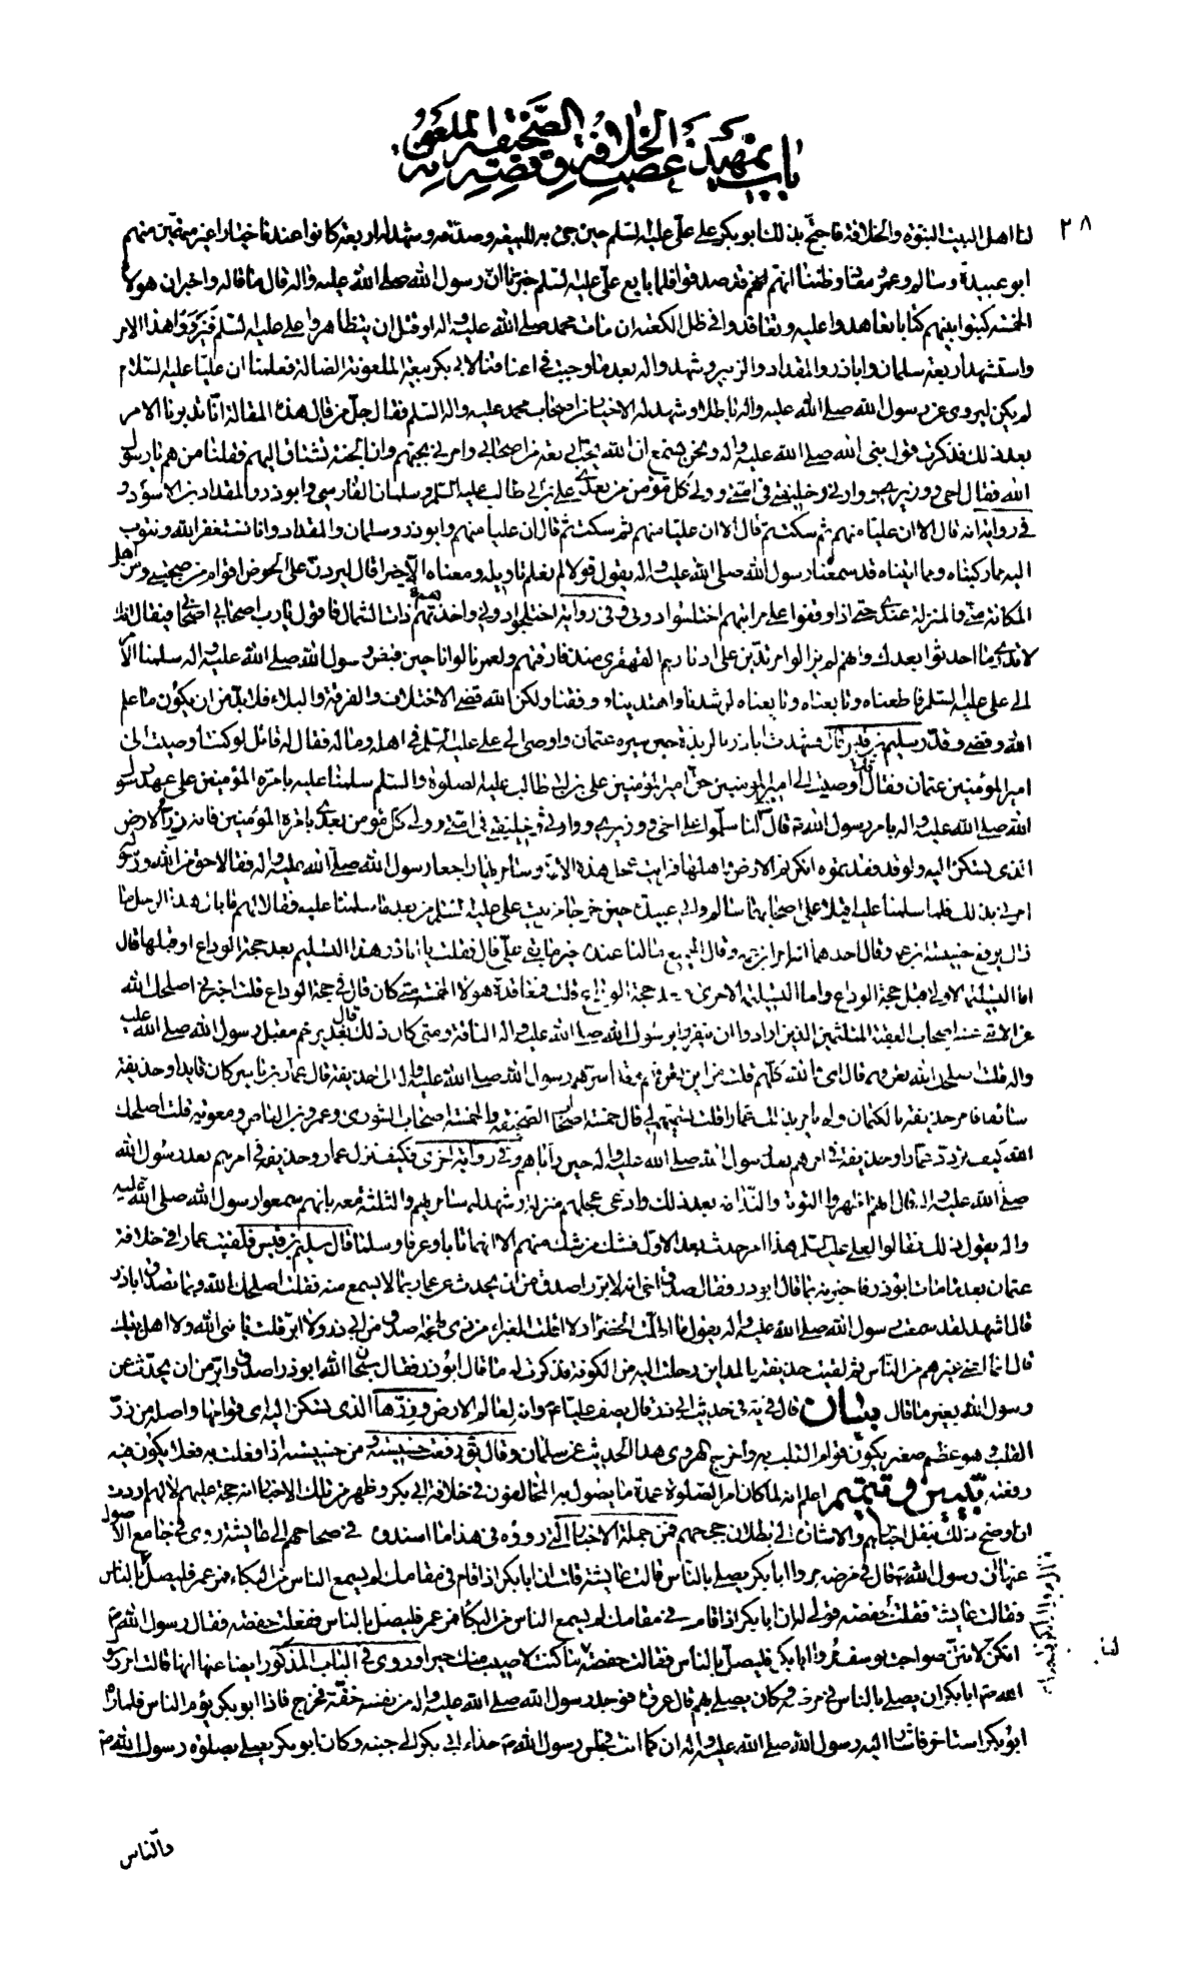 باب تمهيد غصب الخلافة وقصة الصحيفة الملعونة
٢٨
لنا اهل البيت النبوة والخلافة فاحتج بذلك ابو بكر على علي عليه السلم حين جئ به للبيعة وصدقه وشهد له اربعة كانوا عندنا خيارا غير متهمين منهم
ابو عبيدة وسالم وعمر ومعاذ وظننا انهم قد صدقوا فلما بايع علي عليه السلم خبرنا ان رسول الله صلى الله عليه واله قال ما قاله واخبر ان هولاء
الخمسة كتبوا بينهم كتابا تعاهدوا عليه وتعاقدوا في ظل الكعبة ان مات محمد صلى الله عليه واله او قتل ان يتظاهروا على علي عليه السلم فيزووا هذا الامر
واستشهد اربعة سلمان واباذر والمقداد والزبير وشهدوا له بعد ما وجبت في اعناقنا لابي بكر بيعته الملعونة الضالة فعلمنا ان عليا عليه السلام
لم يكن ليروي عن رسول الله صلى الله عليه واله باطلا وشهد له الاخيار من اصحاب محمد عليه واله السلم فقال جل من قال هذه المقالة انا تدبرنا الامر
بعد ذلك فذكرنا قول نبي الله صلى الله عليه واله ونحن نسمع ان الله يحب اربعة من اصحابي وامرني بحبهم وان الجنة تشتاق اليهم فقلنا من هم يا رسول
الله فقال اخي ووزيري ووارثي وخليفتي في امتي وولي كل مؤمن من بعدي علي بن ابي طالب عليه السلم وسلمان الفارسي وابوذر والمقداد بن الاسود و
في رواية انه قال الا ان عليا منهم ثم سكت ثم قال الا ان عليا منهم ثم سكت ثم قال ان عليا منهم وابوذر وسلمان والمقداد وانا نستغفر الله ونتوب
اليه مما ركبناه ومما اتيناه قد سمعنا رسول الله صلى الله عليه واله يقول قولا لم نعلم تاويله ومعناه الا خيرا قال ليردن على الحوض اقوام ممن صحبني ومن اهل
المكانة مني والمنزلة عندي حتى اذا وقفوا على مراتبهم اختلسوا دوني وفي رواية اختلجوا دوني واخذ بهم ذات الشمال فاقول يا رب اصحابي اصحابي فيقال انك
لا تدري ما احدثوا بعدك وانهم لم يزالوا مرتدين على ادبارهم القهقرى منذ فارقتهم ولعمرنا لو انا حين قبض رسول الله صلى الله عليه واله سلمنا الامر
الى علي عليه السلم فاطعناه وتابعناه وبايعناه لرشدنا واهتدينا ووفقنا ولكن الله قضى الاختلاف والفرقة والبلاء فلا بد من ان يكون ما علم
الله وقضى وقدر سليم بن قيس قال فشهدت اباذر بالربذة حين سيره عثمان واوصى الى علي عليه السلم في اهله وماله فقال له قائل لو كنت اوصيت الى
امير المؤمنين عثمان فقال قد اوصيت الى امير المؤمنين حق امير المؤمنين علي بن ابي طالب عليه الصلوة والسلم سلمنا عليه بامرة المؤمنين على عهد رسول
الله صلى الله عليه واله بامر رسول الله قال لنا سلموا على اخي ووزيري ووارثي وخليفتي في امتي وولي كل مؤمن بعدي بامرة المؤمنين فانه زر الارض
الذي تسكن اليه ولو قد فقدتموه انكرتم الارض واهلها فرايت عجل هذه الامة وسامريها راجعا رسول الله صلى الله عليه واله فقالا حق من الله ورسوله
امرني بذلك فلما سلمنا عليه اقبلا على اصحابهما سالم وابي عبيدة حين خرجا من بيت علي عليه السلم من بعد ما سلمنا عليه فقالا لهم ما بال هذا الرجل ما
زال يرفع خسيسة ابن عمه وقال احدهما انه امر ابن عمه وقال الجميع ما لنا عنده خير ما بقي علي قال فقلت يا اباذر هذا التسليم بعد حجة الوداع او قبلها قال
اما التسليمة الاولى قبل حجة الوداع واما التسليمة الاخرى بعد حجة الوداع قلت فمعاقدة هولاء الخمسة متى كان قال في حجة الوداع قلت اخبرني اصلحك الله
عن الاثني عشر اصحاب العقبة المتلثمين الذين ارادوا ان ينفروا برسول الله صلى الله عليه واله الناقة ومتى كان ذلك قال بغدير خم مقبل رسول الله صلى الله عليه
واله قلت اصلحك الله تعرفهم قال اي والله كلهم قلت من اين تعرفهم وقد اسرهم رسول الله صلى الله عليه واله الى حذيفة قال عمار بن ياسر كان قايدا وحذيفة
سائقا فامر حذيفة بالكتمان ولم يامر بذلك عمارا قلت تسميهم لي قال خمسة اصحاب الصحيفة والخمسة اصحاب الشورى وعمرو بن العاص ومعوية قلت اصلحك
الله كيف تردد عمار وحذيفة في امرهم بعد رسول الله صلى الله عليه واله حين راياهم وفي رواية اخرى فكيف نزل عمار وحذيفة في امرهم بعد رسول الله
صلى الله عليه واله قال انهم اظهروا التوبة والندامة بعد ذلك وادعى عجلهم منزلة وشهد له سامريهم والثلثة معه بانهم سمعوا رسول الله صلى الله عليه
واله يقول ذلك فقالوا لعل هذا امر حدث بعد الاول فشك من شك منهم الا انهما تابا وعرفا وسلما قال سليم بن قيس فلقيت عمارا في خلافة
عثمان بعد ما مات ابوذر فاخبرته بما قال ابوذر فقال صدق اخي انه لابر واصدق من ان يحدث عن عمار بما لا يسمع منه فقلت اصلحك الله وبما تصدق اباذر
قال اشهد لقد سمعت رسول الله صلى الله عليه واله يقول ما اظلت الخضراء ولا اقلت الغبراء من ذي لهجة اصدق من ابي ذر ولا ابر قلت يا نبي الله ولا اهل بيتك
قال انما اعني غيرهم من الناس ثم لقيت حذيفة بالمداين رحلت اليه من الكوفة فذكرت له ما قال ابوذر فقال سبحان الله ابوذر اصدق وابر من ان يحدث عن
رسول الله بغير ما قال بيان قال في حديث ابي ذر قال يصف عليا وانه لعالم الارض وزرها الذي تسكن اليه اي قوامها واصله من زر
القلب وهو عظم صغير يكون قوام القلب به واخرج الهروي هذا الحديث عن سلمان وقال يق رفعت خسيسته ومن خسيسته اذا فعلت به فعلا يكون فيه
رفعته تبيين وتتميم اعلم انه لما كان امر الصلوة عمدة ما يصول به المخالفون في خلافة ابي بكر وظهر من تلك الاخبار انه حجة عليهم لا لهم اردت
ان اوضح ذلك بنقل اخبارهم والاشارة الى بطلان حججهم فمن جملة الاخبار التي رووه في هذا ما اسندوه في صحاحهم الى عايشة روى في جامع الاصول
عنها ان رسول الله قال في مرضه مروا ابا بكر يصلي بالناس قالت عايشة قلت ان ابا بكر اذا قام في مقامك لم يسمع الناس من البكاء فمر عمر فليصل بالناس
فقالت عايشة فقلت لحفصة قولي له ان ابا بكر اذا قام في مقامك لم يسمع الناس من البكاء فمر عمر فليصل بالناس ففعلت حفصة فقال رسول الله ص
انكن لانتن صواحب يوسف مروا ابا بكر فليصل بالناس فقالت حفصة ما كنت لاصيب منك خيرا وروى في الباب المذكور ايضا عنها انها قالت امر رسول
الله ص ابا بكر ان يصلي بالناس في مرضه فكان يصلي بهم قال عروة فوجد رسول الله صلى الله عليه واله من نفسه خفة فخرج فاذا ابو بكر يؤم الناس فلما راه
ابو بكر استاخر فاشار اليه رسول الله صلى الله عليه واله ان كما انت فجلس رسول الله ص حذاء ابي بكر الى جنبه وكان ابو بكر يصلي بصلوة رسول الله ص
والناس